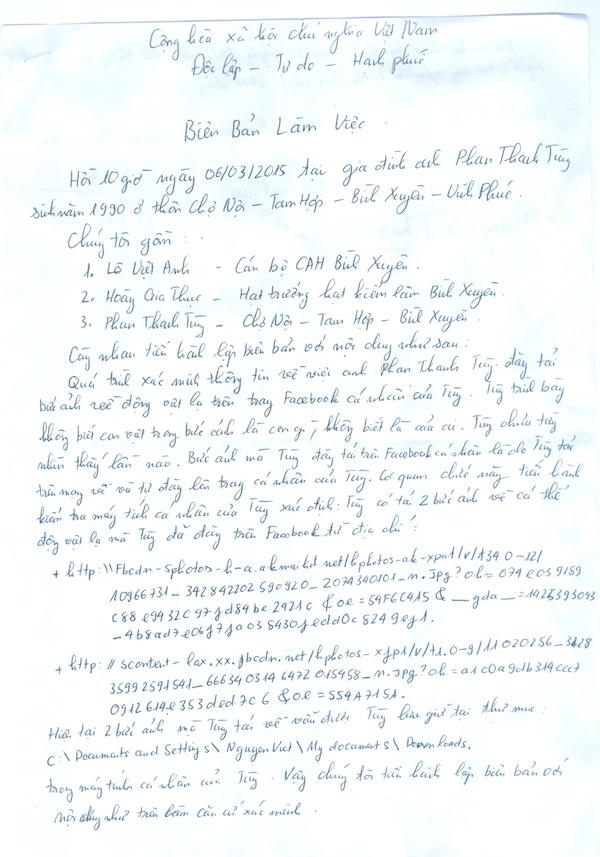 Cộng hòa xã hội chủ nghĩa Việt Nam
Độc lập - Tự do - Hạnh phúc
Biên Bản Làm Việc.
Hồi 10 giờ ngày 06/03/2015 tại gia đình anh Phan Thanh Tùng
sinh năm 1990 ở thôn Chợ Nội - Tam Hợp - Bình Xuyên - Vĩnh Phúc.
Chúng tôi gồm:
1. Lô Việt Anh - Cán bộ CAH Bình Xuyên.
2. Hoàng Gia Thục - Hạt trưởng hạt kiểm lâm Bình Xuyên.
3. Phan Thanh Tùng - Chợ Nội - Tam Hợp - Bình Xuyên.
Cùng nhau tiến hành lập biên bản với nội dung như sau:
Quá trình xác minh thông tin về việc anh Phan Thanh Tùng đăng tải
bức ảnh về động vật lạ trên trang Facebook cá nhân của Tùng. Tùng trình bày
không biết con vật trong bức ảnh là con gì, không biết là của ai. Tùng chưa từng
nhìn thấy lần nào. Bức ảnh mà Tùng đăng tải trên Facebook cá nhân là do Tùng tải
trên mạng về và tự đăng lên trang cá nhân của Tùng. Cơ quan chức năng tiến hành
kiểm tra máy tính cá nhân của Tùng xác định: Tùng có tải 2 bức ảnh về cá thể
động vật lạ mà Tùng đã đăng trên Facebook từ địa chỉ:
+ http:\\Fbcdn-sphotos-h-a.akamaihd.net/hphotos-ak-xpa1/v/t34.0-12/
10966731_342842202590920_2074340101_n.jpg?oh=074e039189
c88e9432c97fd84be2421c&oe=54F6C415&__gda__=1425393093
_4b8ad7e06f7fa0358430fedd0c8249ef1.
+ http://scontent-lax.xx.fbcdn.net/hphotos-xfp1/v/t1.0-9/11020256_3428
35992591541_6663403146472015458_n.jpg?oh=a1c0a9db314ccc7
0912614e353ded7c6&oe=554A7151.
Hiện tại 2 bức ảnh mà Tùng tải về vẫn được Tùng lưu giữ tại thư mục:
C:\Documents and Settings\NguyenViet\My documents\Downloads.
trong máy tính cá nhân của Tùng. Vậy chúng tôi tiến hành lập biên bản với
nội dung như trên làm căn cứ xác minh.